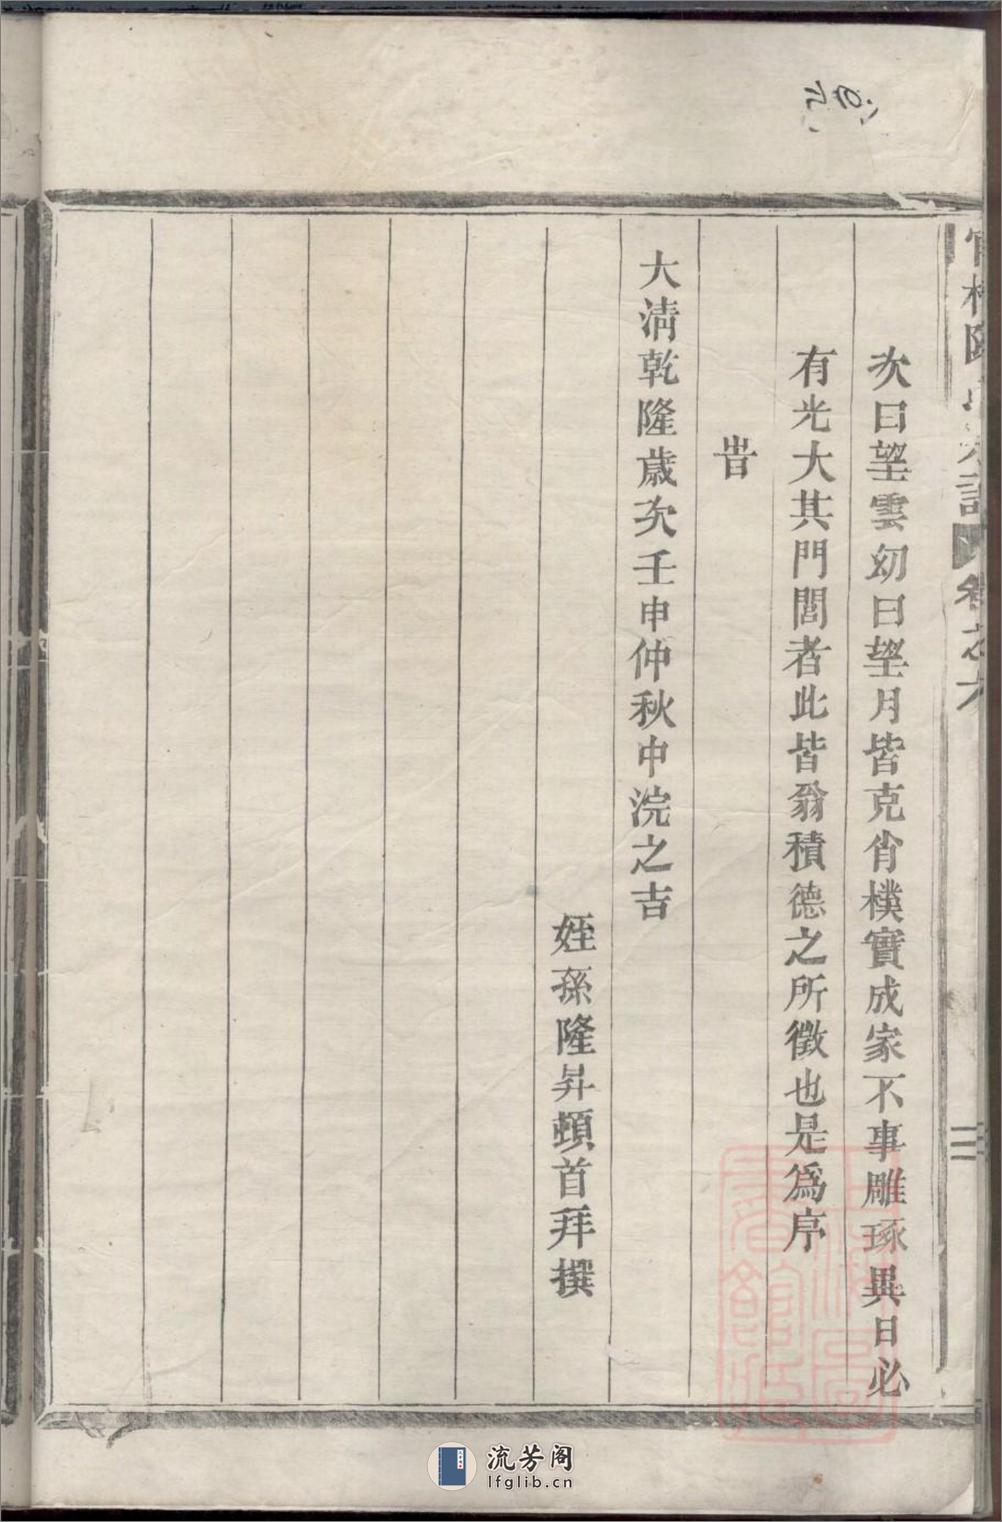 次曰望雲幼曰望月皆克肖樸實成家不事雕琢異日必
有光大其門閭者此皆翁積德之所徵也是為序
旹
大清乾隆歲次壬申仲秋中浣之吉
姪孫隆昇頓首拜撰
卷之六
二
流芳阁
lfglib.cn